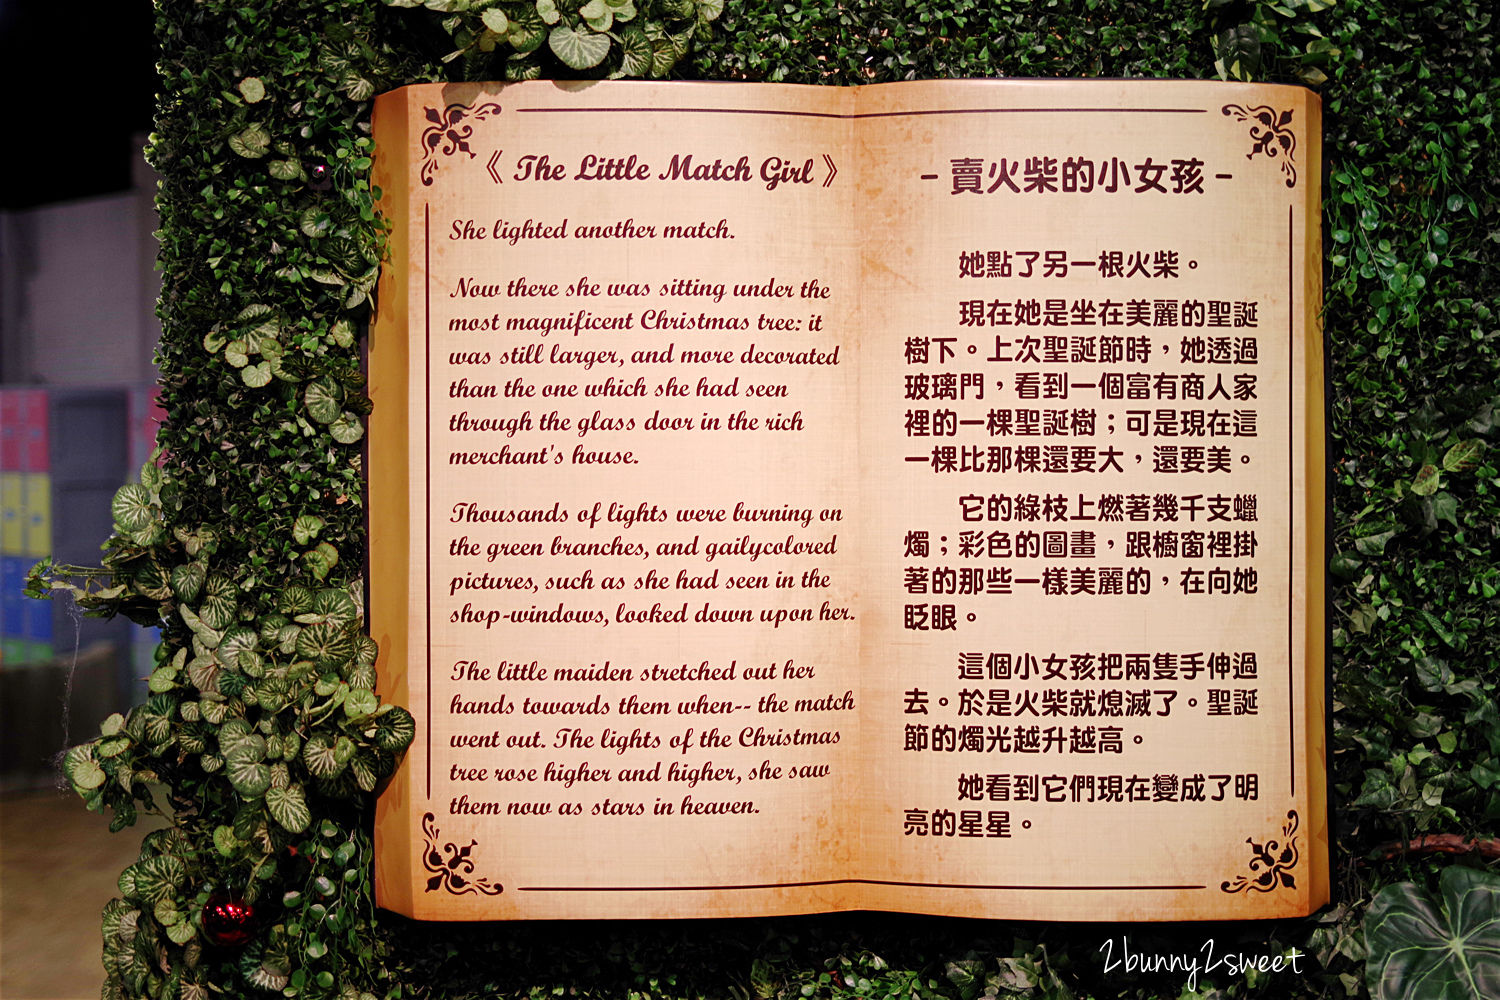 《 The Little Match Girl 》
She lighted another match.
Now there she was sitting under the
most magnificent Christmas tree: it
was still larger, and more decorated
than the one which she had seen
through the glass door in the rich
merchant's house.
Thousands of lights were burning on
the green branches, and gailycolored
pictures, such as she had seen in the
shop-windows, looked down upon her.
The little maiden stretched out her
hands towards them when-- the match
went out. The lights of the Christmas
tree rose higher and higher, she saw
them now as stars in heaven.
－賣火柴的小女孩－
她點了另一根火柴。
現在她是坐在美麗的聖誕
樹下。上次聖誕節時，她透過
玻璃門，看到一個富有商人家
裡的一棵聖誕樹；可是現在這
一棵比那棵還要大，還要美。
它的綠枝上燃著幾千支蠟
燭；彩色的圖畫，跟櫥窗裡掛
著的那些一樣美麗的，在向她
眨眼。
這個小女孩把兩隻手伸過
去。於是火柴就熄滅了。聖誕
節的燭光越升越高。
她看到它們現在變成了明
亮的星星。
2bunny2sweet